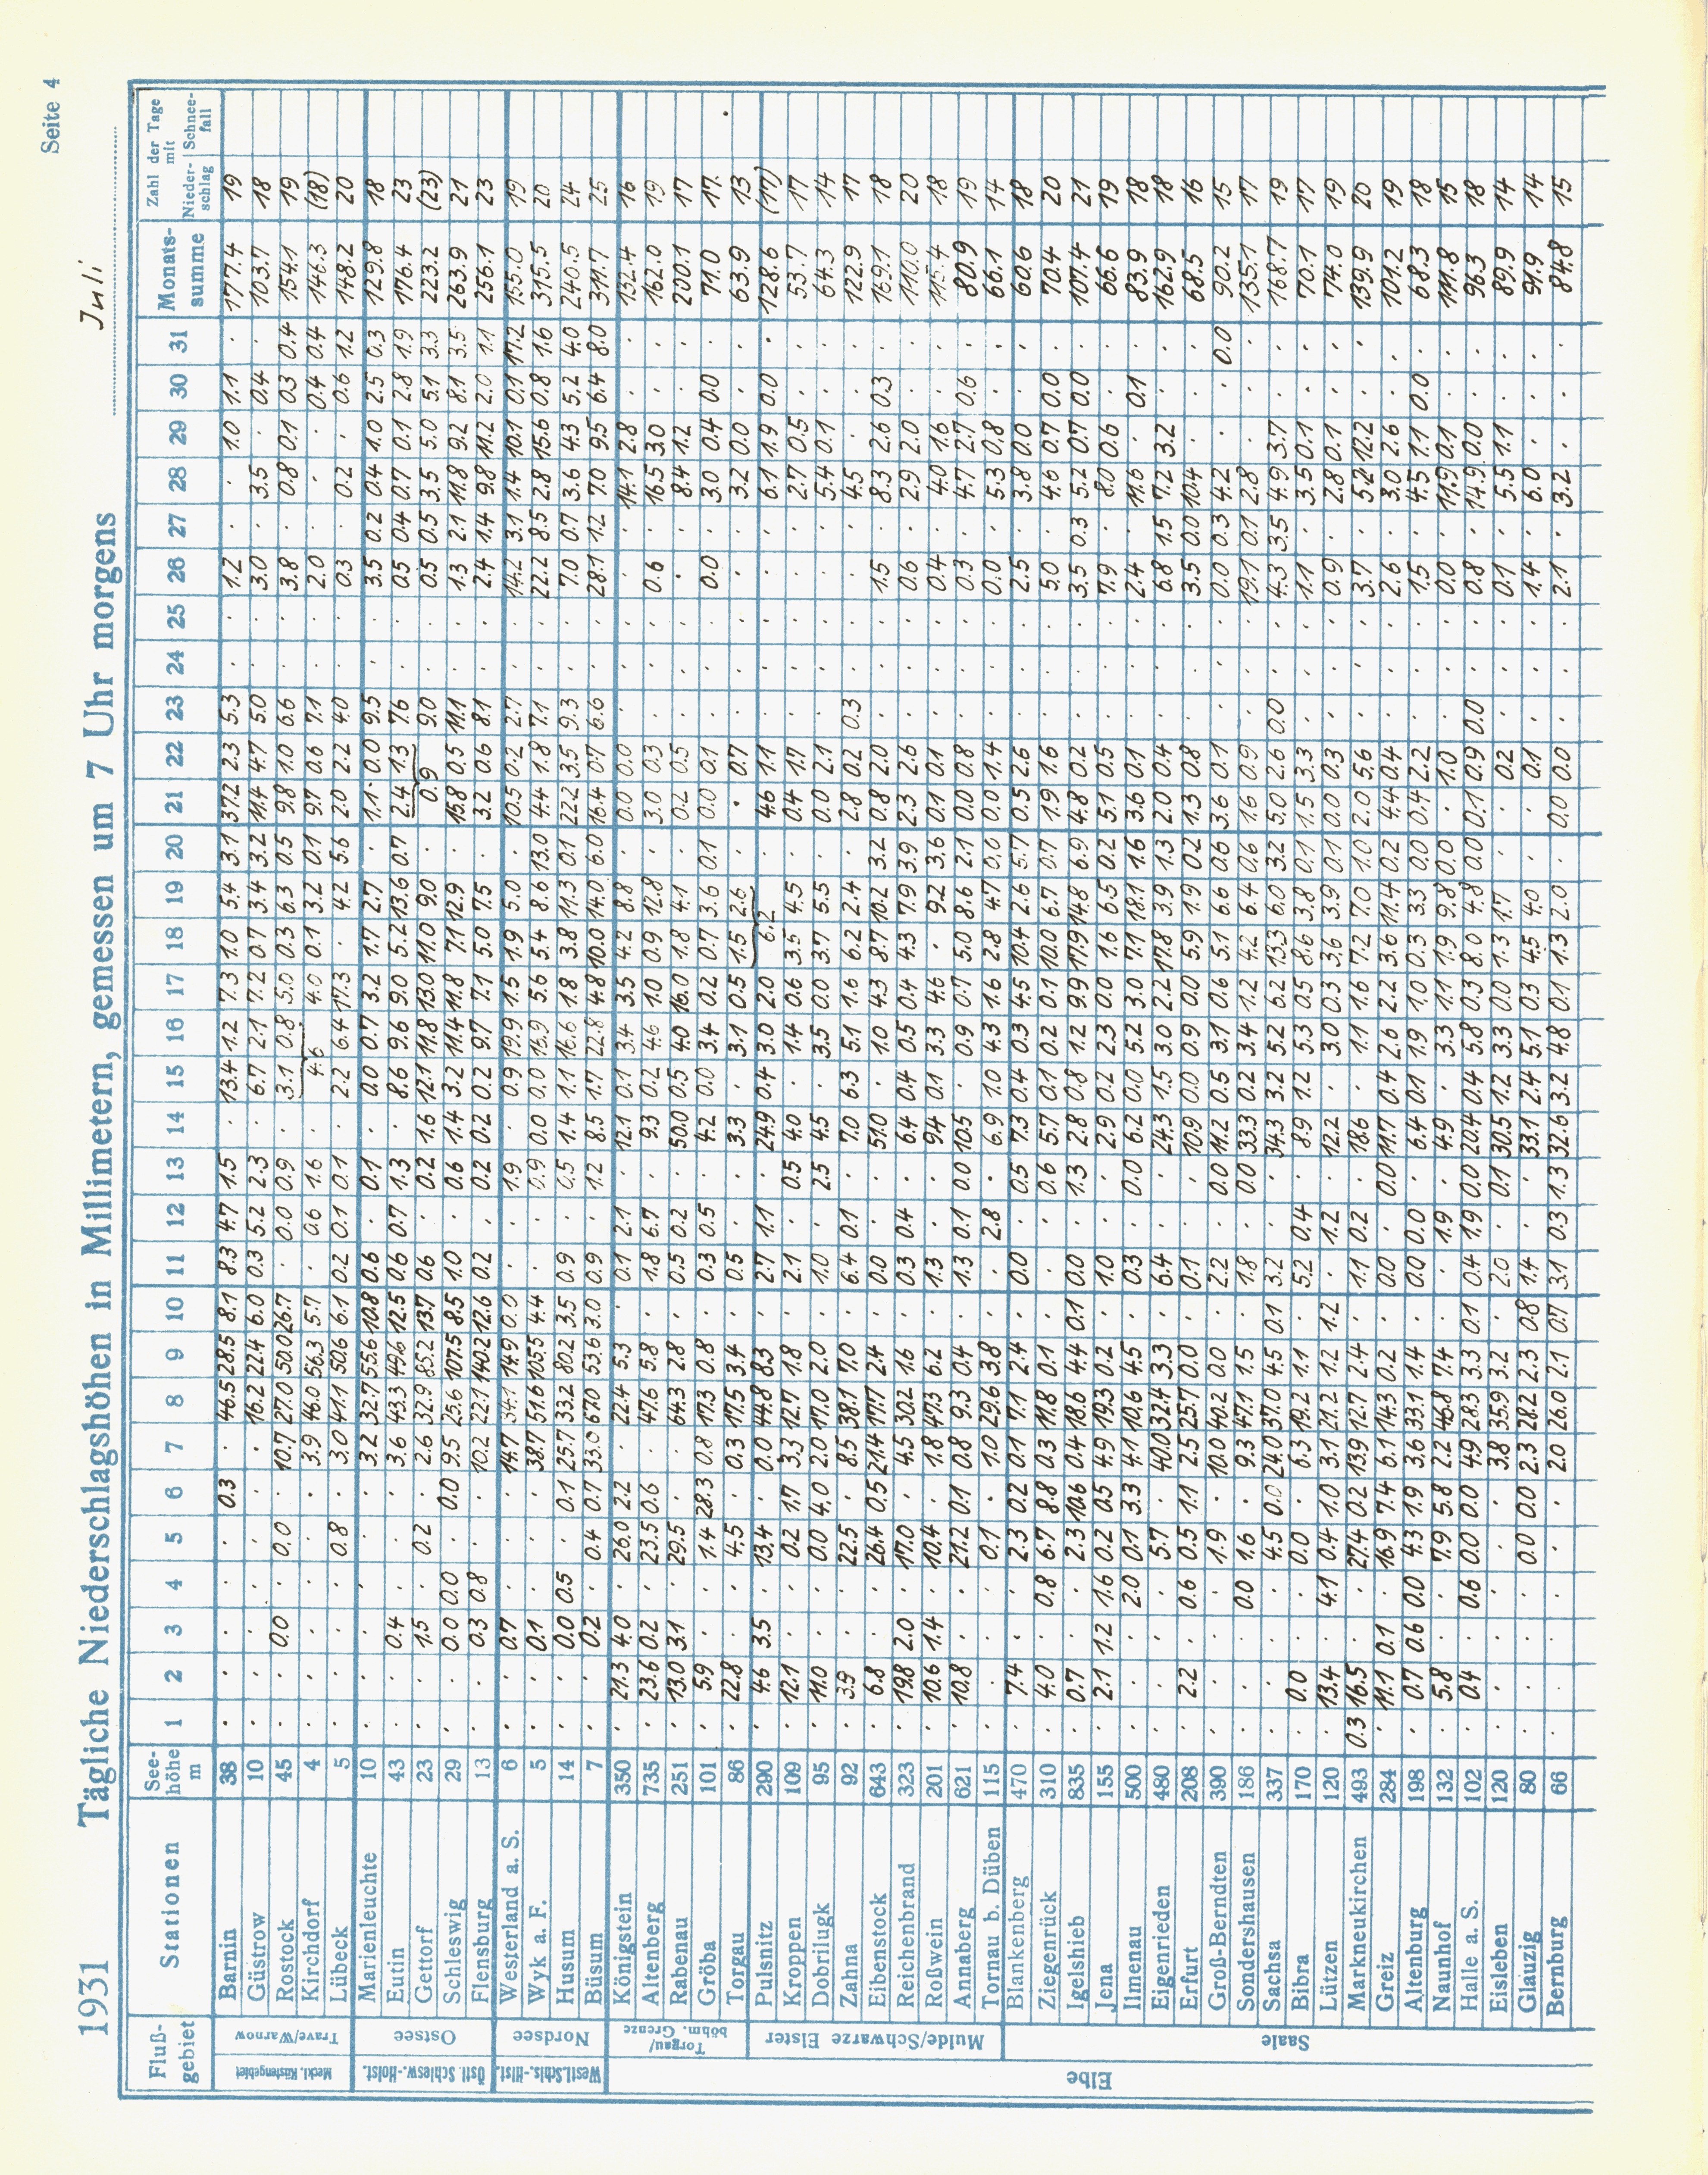 Seite 4
1931 Tägliche Niederschlagshöhen in Millimetern, gemessen um 7 Uhr morgens Juli
Fluß-gebiet Stationen See-höhe m 1 2 3 4 5 6 7 8 9 10 11 12 13 14 15 16 17 18 19 20 21 22 23 24 25 26 27 28 29 30 31 Monats-summe Zahl der Tage mit Nieder-schlag Schnee-fall
Meckl. Küstengebiet
Trave/Warnow
Barnin 38 . . . . . 0.3 . 46.5 28.5 8.1 8.3 4.7 1.5 . 13.4 1.2 7.3 1.0 5.4 3.1 37.2 2.3 5.3 . . 1.2 . . 1.0 1.1 . 177.4 19
Güstrow 10 . . . . . . . 16.2 22.4 6.0 0.3 5.2 2.3 . 6.7 2.1 7.2 0.7 3.4 3.2 11.4 4.7 5.0 . . 3.0 . 3.5 . 0.4 . 103.7 18
Rostock 45 . . 0.0 . 0.0 . 10.7 27.0 50.0 26.7 . 0.0 0.9 . 3.1 0.8 5.0 0.3 6.3 0.5 9.8 1.0 6.6 . . 3.8 . 0.8 0.1 0.3 0.4 154.1 19
Kirchdorf 4 . . . . . . 3.9 46.0 56.3 5.7 . 0.6 1.6 . 4.6 4.0 0.1 3.2 0.1 9.7 0.6 7.1 . . 2.0 . . . 0.4 0.4 146.3 (18)
Lübeck 5 . . . . 0.8 . 3.0 41.1 50.6 6.1 0.2 0.1 0.1 . 2.2 6.4 17.3 . 4.2 5.6 2.0 2.2 4.0 . . 0.3 . 0.2 . 0.6 1.2 148.2 20
Östl. Schlesw.-Holst.
Ostsee
Marienleuchte 10 . . . . . . 3.2 32.7 55.6 10.8 0.6 . 0.1 . 0.0 0.7 3.2 1.7 2.7 . 1.1 0.0 9.5 . . 3.5 0.2 0.4 1.0 2.5 0.3 129.8 18
Eutin 43 . . 0.4 . . . 3.6 43.3 49.6 12.5 0.6 0.7 1.3 . 8.6 9.6 9.0 5.2 13.6 0.7 2.4 1.3 7.6 . . 0.5 0.4 0.7 0.1 2.8 1.9 176.4 23
Gettorf 23 . . 1.5 . 0.2 . 2.6 32.9 85.2 13.7 0.6 . 0.2 1.6 12.1 11.8 13.0 11.0 9.0 . 0.9 9.0 . . 0.5 0.5 3.5 5.0 5.1 3.3 223.2 (23)
Schleswig 29 . . 0.0 0.0 . 0.0 9.5 25.6 107.5 8.5 1.0 . 0.6 1.4 3.2 11.4 11.8 7.1 12.9 . 15.8 0.5 11.1 . . 1.3 2.1 11.8 9.2 8.1 3.5 263.9 21
Flensburg 13 . . 0.3 0.8 . . 10.2 22.1 140.2 12.6 0.2 . 0.2 0.2 0.2 9.7 7.1 5.0 7.5 . 3.2 0.6 8.1 . . 2.4 1.4 9.8 11.2 2.0 1.1 256.1 23
Westl. Schls.-Hlst.
Nordsee
Westerland a. S. 6 . . 0.7 . . . 14.7 34.1 14.9 0.0 . . 1.9 . 0.9 19.9 1.5 1.9 5.0 . 10.5 0.2 2.7 . . 14.2 3.1 1.4 10.1 0.1 17.2 155.0 19
Wyk a. F. 5 . . 0.1 . . . 38.7 51.6 105.5 4.4 . . 0.9 0.0 0.0 16.9 5.6 5.4 8.6 13.0 4.4 1.8 7.1 . . 22.2 8.5 2.8 15.6 0.8 1.6 315.5 20
Husum 14 . . 0.0 0.5 . 0.1 25.7 33.2 80.2 3.5 0.9 . 0.5 1.4 1.1 16.6 1.8 3.8 11.3 0.1 22.2 3.5 9.3 . . 7.0 0.7 3.6 4.3 5.2 4.0 240.5 24
Büsum 7 . . 0.2 . 0.4 0.7 33.0 67.0 53.6 3.0 0.9 . 1.2 8.5 1.7 22.8 4.8 10.0 14.0 6.0 16.4 0.7 6.6 . . 28.1 1.2 7.0 9.5 6.4 8.0 311.7 25
Elbe
Torgau/böhm. Grenze
Königstein 350 . 21.3 4.0 . 26.0 2.2 . 22.4 5.3 . 0.1 2.1 . 12.1 0.1 3.4 3.5 4.2 8.8 . 0.0 0.0 . . . . . 14.1 2.8 . . 132.4 16
Altenberg 735 . 23.6 0.2 . 23.5 0.6 . 47.6 5.8 . 1.8 6.7 . 9.3 0.2 4.6 1.0 0.9 12.8 . 3.0 0.3 . . . 0.6 . 16.5 3.0 . . 162.0 19
Rabenau 251 . 13.0 3.1 . 29.5 . . 64.3 2.8 . 0.5 0.2 . 50.0 0.5 4.0 16.0 1.8 4.1 . 0.2 0.5 . . . . . 8.4 1.2 . . 200.1 17
Gröba 101 . 5.9 . . 1.4 28.3 0.8 17.3 0.8 . 0.3 0.5 . 4.2 0.0 3.4 0.2 0.7 3.6 0.1 0.0 0.1 . . . 0.0 . 3.0 0.4 0.0 . 71.0 17.
Torgau 86 . 22.8 . . 4.5 . 0.3 17.5 3.4 . 0.5 . . 3.3 . 3.1 0.5 1.5 2.6 . . 0.7 . . . . . 3.2 0.0 . . 63.9 13
Mulde/Schwarze Elster
Pulsnitz 290 . 4.6 3.5 . 13.4 . 0.0 44.8 8.3 . 2.7 1.1 . 24.9 0.4 3.0 2.0 6.2 . 4.6 1.1 . . . . . 6.1 1.9 0.0 . 128.6 (17)
Kroppen 109 . 12.1 . . 0.2 1.7 3.3 12.7 1.8 . 2.1 . 0.5 4.0 . 1.4 0.6 3.5 4.5 . 0.4 1.7 . . . . . 2.7 0.5 . . 53.7 17
Dobrilugk 95 . 11.0 . . 0.0 4.0 2.0 17.0 2.0 . 1.0 . 2.5 4.5 . 3.5 0.0 3.7 5.5 . 0.0 2.1 . . . . . 5.4 0.1 . . 64.3 14
Zahna 92 . 3.9 . . 22.5 . 8.5 38.1 7.0 . 6.4 0.1 . 7.0 6.3 5.1 1.6 6.2 2.4 . 2.8 0.2 0.3 . . . . 4.5 . . . 122.9 17
Eibenstock 643 . 6.8 . . 26.4 0.5 21.4 17.7 2.4 . 0.0 . . 51.0 . 1.0 4.3 8.7 10.2 3.2 0.8 2.0 . . . 1.5 . 8.3 2.6 0.3 . 169.1 18
Reichenbrand 323 . 19.8 2.0 . 17.0 . 4.5 30.2 1.6 . 0.3 0.4 . 6.4 0.4 0.5 0.4 4.3 7.9 3.9 2.3 2.6 . . . 0.6 . 2.9 2.0 . . 110.0 20
Roßwein 201 . 10.6 1.4 . 10.4 . 1.8 47.3 6.2 . 1.3 . . 9.4 0.1 3.3 4.6 . 9.2 3.6 0.1 0.1 . . . 0.4 . 4.0 1.6 . . 115.4 18
Annaberg 621 . 10.8 . . 21.2 0.1 0.8 9.3 0.4 . 1.3 0.1 0.0 10.5 . 0.9 0.7 5.0 8.6 2.1 0.0 0.8 . . . 0.3 . 4.7 2.7 0.6 . 80.9 19
Tornau b. Düben 115 . . . . 0.1 . 1.0 29.6 3.8 . . 2.8 . 6.9 1.0 4.3 1.6 2.8 4.7 0.0 0.0 1.4 . . . 0.0 . 5.3 0.8 . . 66.1 14
Saale
Blankenberg 470 . 7.4 . . 2.3 0.2 0.1 7.1 2.4 . 0.0 . 0.5 7.3 0.4 0.3 4.5 10.4 2.6 5.7 0.5 2.6 . . . 2.5 . 3.8 0.0 . . 60.6 18
Ziegenrück 310 . 4.0 . 0.8 6.7 8.8 0.3 11.8 0.1 . . . 0.6 5.7 0.1 0.2 0.1 10.0 6.7 0.7 1.9 1.6 . . . 5.0 . 4.6 0.7 0.0 . 70.4 20
Igelshieb 835 . 0.7 . . 2.3 10.6 0.4 18.6 4.4 0.1 0.0 . 1.3 2.8 0.8 1.2 9.9 17.9 14.8 6.9 4.8 0.2 . . . 3.5 0.3 5.2 0.7 0.0 . 107.4 21
Jena 155 . 2.1 1.2 1.6 0.2 0.5 4.9 19.3 0.2 . 1.0 . . 2.9 0.2 2.3 0.0 1.6 6.5 0.2 5.1 0.5 . . . 7.9 . 8.0 0.6 . . 66.6 19
Ilmenau 500 . . . 2.0 0.1 3.3 4.1 10.6 4.5 . 0.3 . 0.0 6.2 0.0 5.2 3.0 7.1 18.1 1.6 3.6 0.1 . . . 2.4 . 11.6 . 0.1 . 83.9 18
Eigenrieden 480 . . . . 5.7 . 40.0 32.4 3.3 . 6.4 . . 24.3 1.5 3.0 2.2 17.8 3.9 1.3 2.0 0.4 . . . 6.8 1.5 7.2 3.2 . . 162.9 18
Erfurt 208 . 2.2 . 0.6 0.5 1.1 2.5 25.7 0.0 . 0.1 . . 10.9 0.0 0.9 0.0 5.9 1.9 0.2 1.3 0.8 . . . 3.5 0.0 10.4 . . . 68.5 16
Groß-Berndten 390 . . . . 1.9 . 10.0 40.2 0.0 . 2.2 . 0.0 11.2 0.5 3.1 0.6 5.1 6.6 0.6 3.6 0.1 . . . 0.0 0.3 4.2 . . 0.0 90.2 15
Sondershausen 186 . . . 0.0 1.6 . 9.3 47.1 1.5 . 1.8 . 0.0 33.3 0.2 3.4 1.2 4.2 6.4 0.6 1.6 0.9 . . . 19.1 0.1 2.8 . . . 135.1 17
Sachsa 337 . . . . 4.5 0.0 24.0 37.0 4.5 0.1 3.2 . . 34.3 3.2 5.2 6.2 13.3 6.0 3.2 5.0 2.6 0.0 . . 4.3 3.5 4.9 3.7 . . 168.7 19
Bibra 170 . 0.0 . . 0.0 . 6.3 19.2 1.1 . 5.2 0.4 . 8.9 1.2 5.3 0.5 8.6 3.8 0.1 1.5 3.3 . . . 1.1 . 3.5 0.1 . . 70.1 17
Lützen 120 . 13.4 . 4.1 0.4 1.0 3.1 21.2 1.2 1.2 . 1.2 . 12.2 . 3.0 0.3 3.6 3.9 0.1 0.0 0.3 . . . 0.9 . 2.8 0.1 . . 74.0 19
Markneukirchen 493 0.3 16.5 . . 27.4 0.2 13.9 12.7 2.4 . 1.1 0.2 . 18.6 . 1.1 1.6 7.2 7.0 1.0 2.0 5.6 . . . 3.7 . 5.2 12.2 . . 139.9 20
Greiz 284 . 11.1 0.1 . 16.9 7.4 6.1 14.3 0.2 . 0.0 . 0.0 11.7 0.4 2.6 2.2 3.6 11.4 0.2 4.4 0.4 . . . 2.6 . 3.0 2.6 . . 101.2 19
Altenburg 198 . 0.7 0.6 0.0 4.3 1.9 3.6 33.1 1.4 . 0.0 0.0 . 6.4 0.1 1.9 1.0 0.3 3.3 0.0 0.4 2.2 . . . 1.5 . 4.5 1.1 0.0 . 68.3 18
Naunhof 132 . 5.8 . . 7.9 5.8 2.2 46.8 7.4 . . 1.9 . 4.9 . 3.3 1.1 1.9 9.8 0.0 . 1.0 . . . 0.0 . 11.9 0.1 . . 111.8 15
Halle a. S. 102 . 0.4 . 0.6 0.0 0.0 4.9 28.3 3.3 0.1 0.4 1.9 0.0 20.4 0.4 5.8 0.3 8.0 4.8 0.0 0.1 0.9 0.0 . . 0.8 . 14.9 0.0 . . 96.3 18
Eisleben 120 . . . . . . 3.8 35.9 3.2 . 2.0 . 0.1 30.5 1.2 3.3 0.0 1.3 1.7 . . 0.2 . . . 0.1 . 5.5 1.1 . . 89.9 14
Glauzig 80 . . . . 0.0 0.0 2.3 28.2 2.3 0.8 1.4 . . 33.1 2.4 5.1 0.3 4.5 4.0 . . 0.1 . . . 1.4 . 6.0 . . . 91.9 14
Bernburg 66 . . . . . . 2.0 26.0 2.1 0.7 3.1 0.3 1.3 32.6 3.2 4.8 0.1 1.3 2.0 . 0.0 0.0 . . . 2.1 . 3.2 . . . 84.8 15